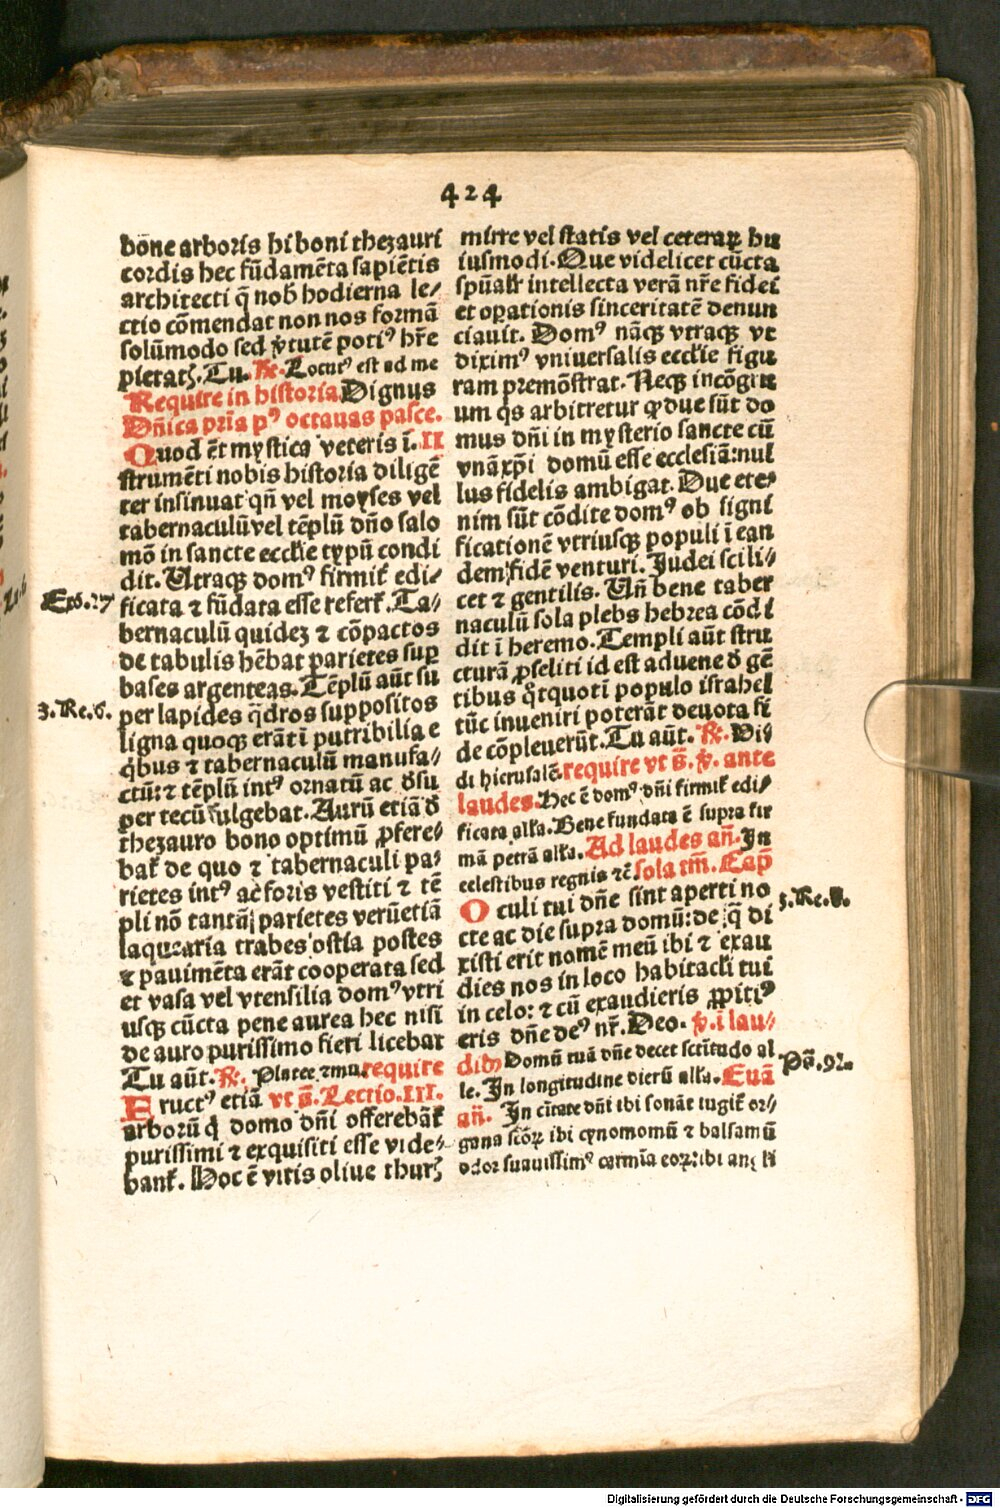 424
bōne arboris hi boni thezauri
cordis hec fūdamēta sapiētis
architecti q̄ nob̄ hodierna le/
ctio cōmendat non nos formā
solūmodo sed v̓tutē poti⁹ hr̄e
pietatꝭ. Tu. ℞. Locut⁹ est ad me
Require in historia. Dignus
Dn̄ica pria p⁹ octauas pasce.
Quod ēt mystica veteris ī. II
strumēti nobis historia diligē
ter insinuat qn̄ vel moyses vel
tabernaculū vel tēplū dn̄o salo
mō in sancte eccl̄ie typū condi
dit. Utraqꝫ dom⁹ firmit̄ edi/
Exo. 27
ficata ⁊ fūdata esse refert̄. Ta/
bernaculū quidez ⁊ cōpactos
de tabulis hēbat parietes suꝑ
bases argenteas. Tēplū aūt su
3. Re. 6.
per lapides q̄dros suppositos
ligna quoqꝫ erāt ī putribilia e
q̓bus ⁊ tabernaculū manufa/
ctū: ⁊ tēplū int⁹ ornatū ac d̓su
per tectū fulgebat. Aurū etiā d̓
thezauro bono optimū ꝓfere/
bat̄ de quo ⁊ tabernaculi pa/
rietes int⁹ ac foris vestiti ⁊ tē
pli nō tantū parietes verū etiā
laquearia trabes ostia postes
⁊ pauimēta erāt cooperata sed
et vasa vel vtensilia dom⁹ vtri
usqꝫ cūcta pene aurea hec nisi
de auro purissimo fieri licebat
Tu aūt. ℞. Platee tue require
vt s̄. Lectio. III.
Eruct⁹ etiā
arborū q̓ domo dn̄i offerebāt̄
purissimi ⁊ exquisiti esse vide/
bant̄. Hoc ē vitis oliue thurꝭ
mirre vel statis vel ceteraꝝ hu
iusmodi. Que videlicet cūcta
spūalr̄ intellecta verā nr̄e fidei
et oꝑationis sinceritatē denun
ciauit. Dom⁹ nāqꝫ vtraqꝫ vt
dixim⁹ vniuersalis eccl̄ie figu
ram premōstrat. Neqꝫ incōgru
um q̄s arbitretur ꝙ due sūt do
mus dn̄i in mysterio sancte cū
vnā xp̄i domū esse ecclesiā: nul
lus fidelis ambigat. Due ete/
nim sūt cōdite dom⁹ ob signi
ficationē vtriusqꝫ populi ī ean
dem fidē venturi. Judei scili/
cet ⁊ gentilis. Un̄ bene taber
naculū sola plebs hebrea cōdi
dit ī heremo. Templi aūt stru
cturā ꝓseliti id est aduene d̓ gē
tibus q̓tquot ī populo israhel
tūc inueniri poterāt deuota fi
de cōpleuerūt. Tu aūt. ℞. Vi/
di hierusalē. require vt s̄. v̓. ante
laudes. Hec ē dom⁹ dn̄i firmit̄ edi/
ficata all̄a. Bene fundata ē supra fir
mā petrā all̄a. Ad laudes an̄. In
celestibus regnis ⁊c̄ sola tm̄. Cap̄
Oculi tui dn̄e sint aperti no
3. Re. 8.
cte ac die supra domū: de q̄ di
xisti erit nomē meū ibi ⁊ exau
dies nos in loco habitacl̄i tui
in celo: ⁊ cū exaudieris ꝓpiti⁹
eris dn̄e de⁹ nr̄. Deo. v̓. ī lau/
dibꝫ Domū tuā dn̄e decet sctītudo al
Ps̄. 92.
le. In longitudine dierū all̄a. Euā
an̄. In ciuitate dn̄i ibi sonāt iugit̄ or/
gana sctōꝝ ibi cynomomū ⁊ balsamū
odor suauissim⁹ carmīa eoꝝ: ibi angeli
Digitalisierung gefördert durch die Deutsche Forschungsgemeinschaft - DFG